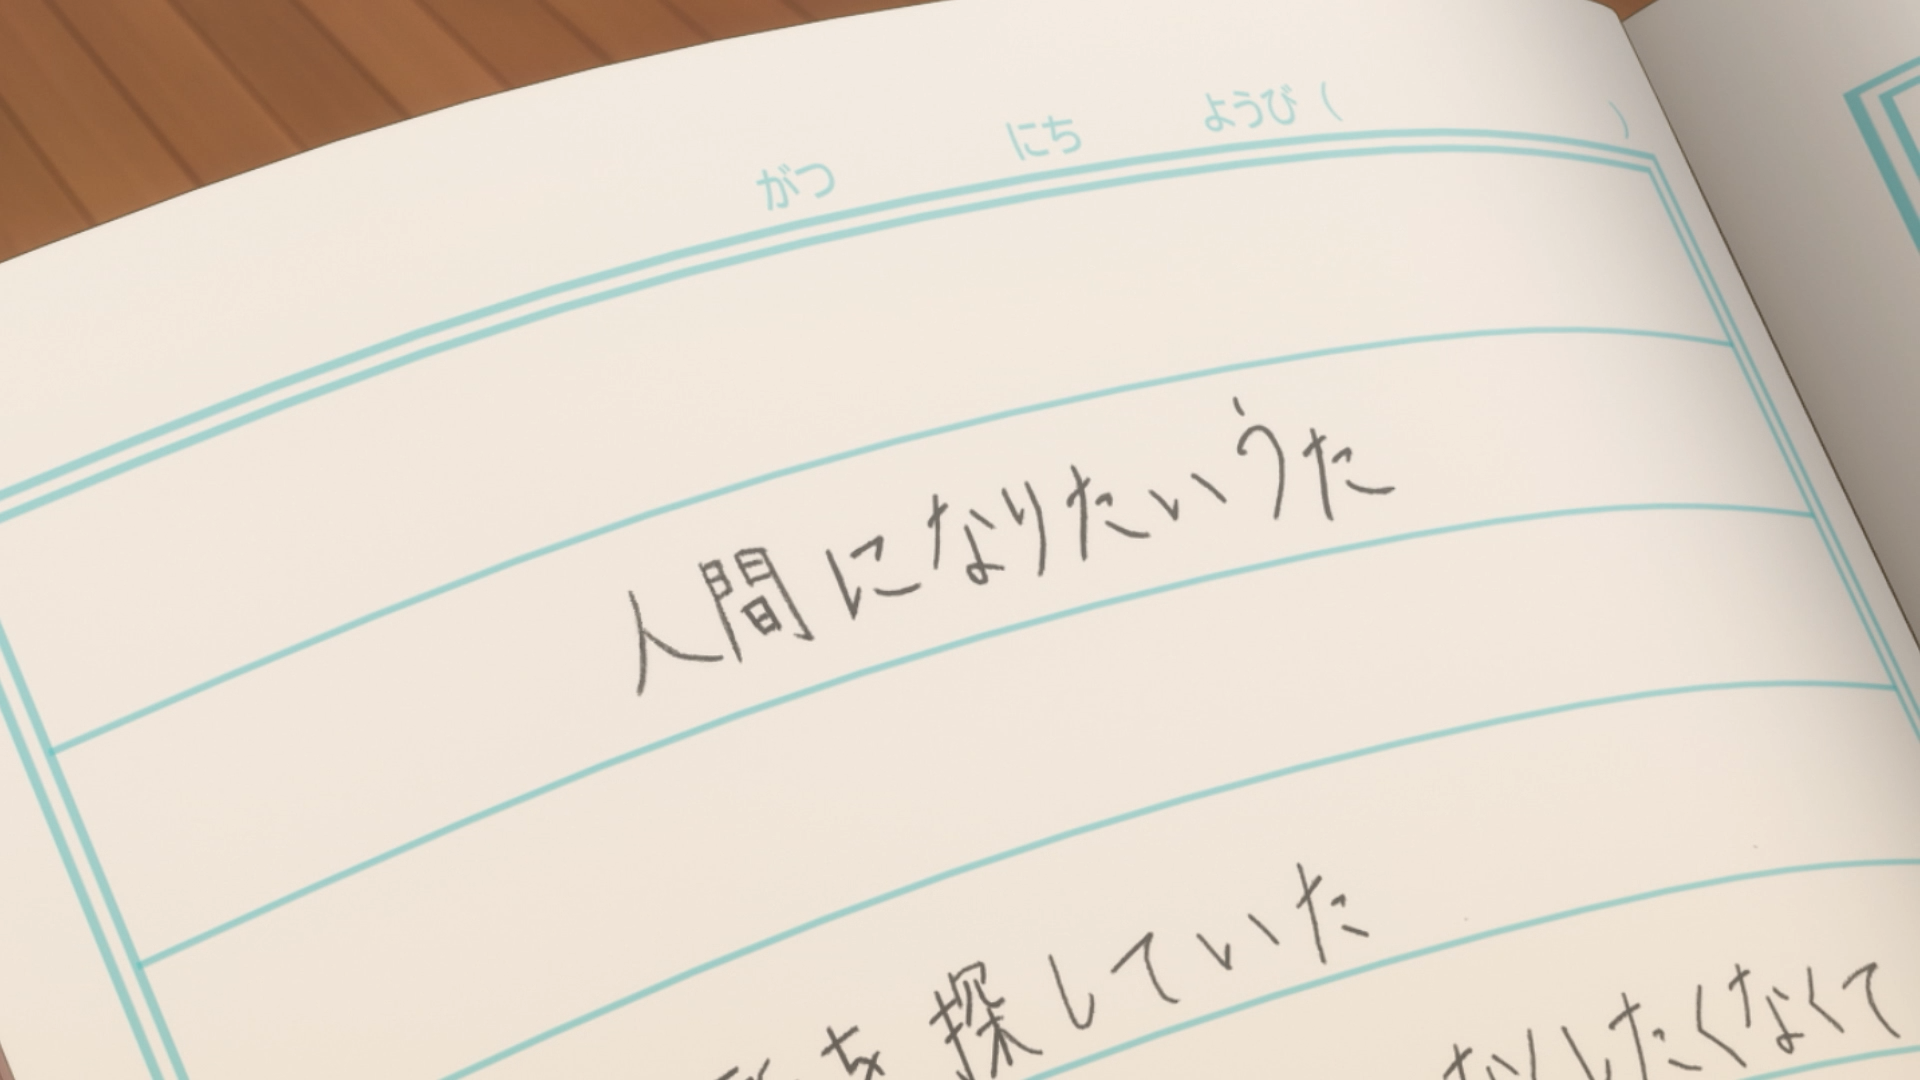 がつ にち ようび ( )
人間になりたいうた
を探していた
したくなくて